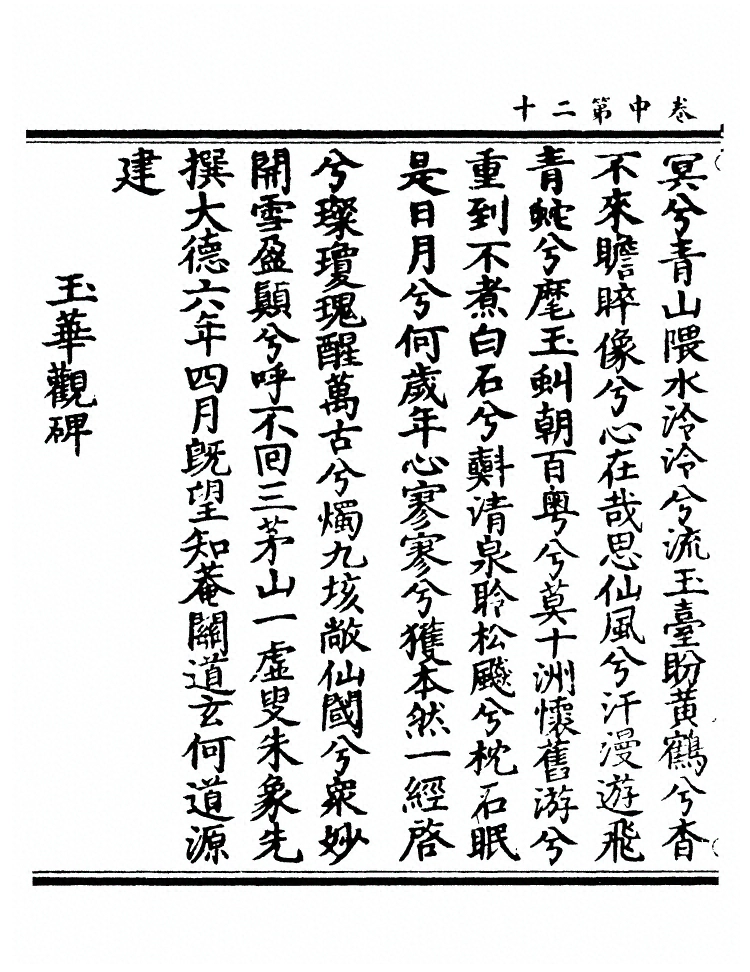 卷中第二十
冥兮青山隈水泠泠兮流玉臺盼黃鶴兮杳
不來瞻睟像兮心在哉思仙風兮汗漫遊飛
青蛇兮麾玉虯朝百粵兮莫十洲懷舊游兮
重到不煮白石兮㪺清泉聆松飈兮枕石眠
是日月兮何歲年心寥寥兮獲本然一經啓
兮璨瓊瑰醒萬古兮燭九垓敞仙閫兮衆妙
開雪盈顚兮呼不回三茅山一虛叟朱象先
撰大德六年四月旣望知菴關道玄何道源
建
玉華觀碑